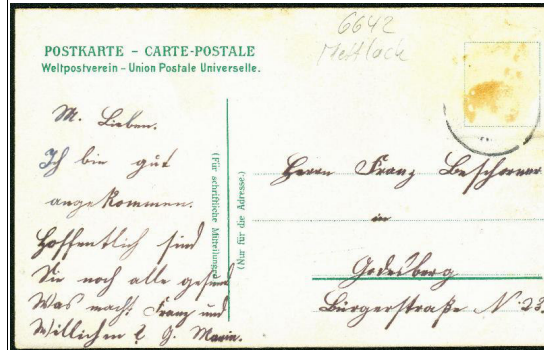 6642
Mettlach
POSTKARTE – CARTE-POSTALE
Weltpostverein – Union Postale Universelle.
M. Lieben.
Ich bin gut
angekommen.
Hoffentlich sind
Sie noch alle gesund
Was macht Franz und
Willichen? G. Maria.
(Für schriftliche Mitteilungen)
(Nur für die Adresse.)
Herrn Franz Beschorner
in
Godesberg
Bürgerstraße N. 23.